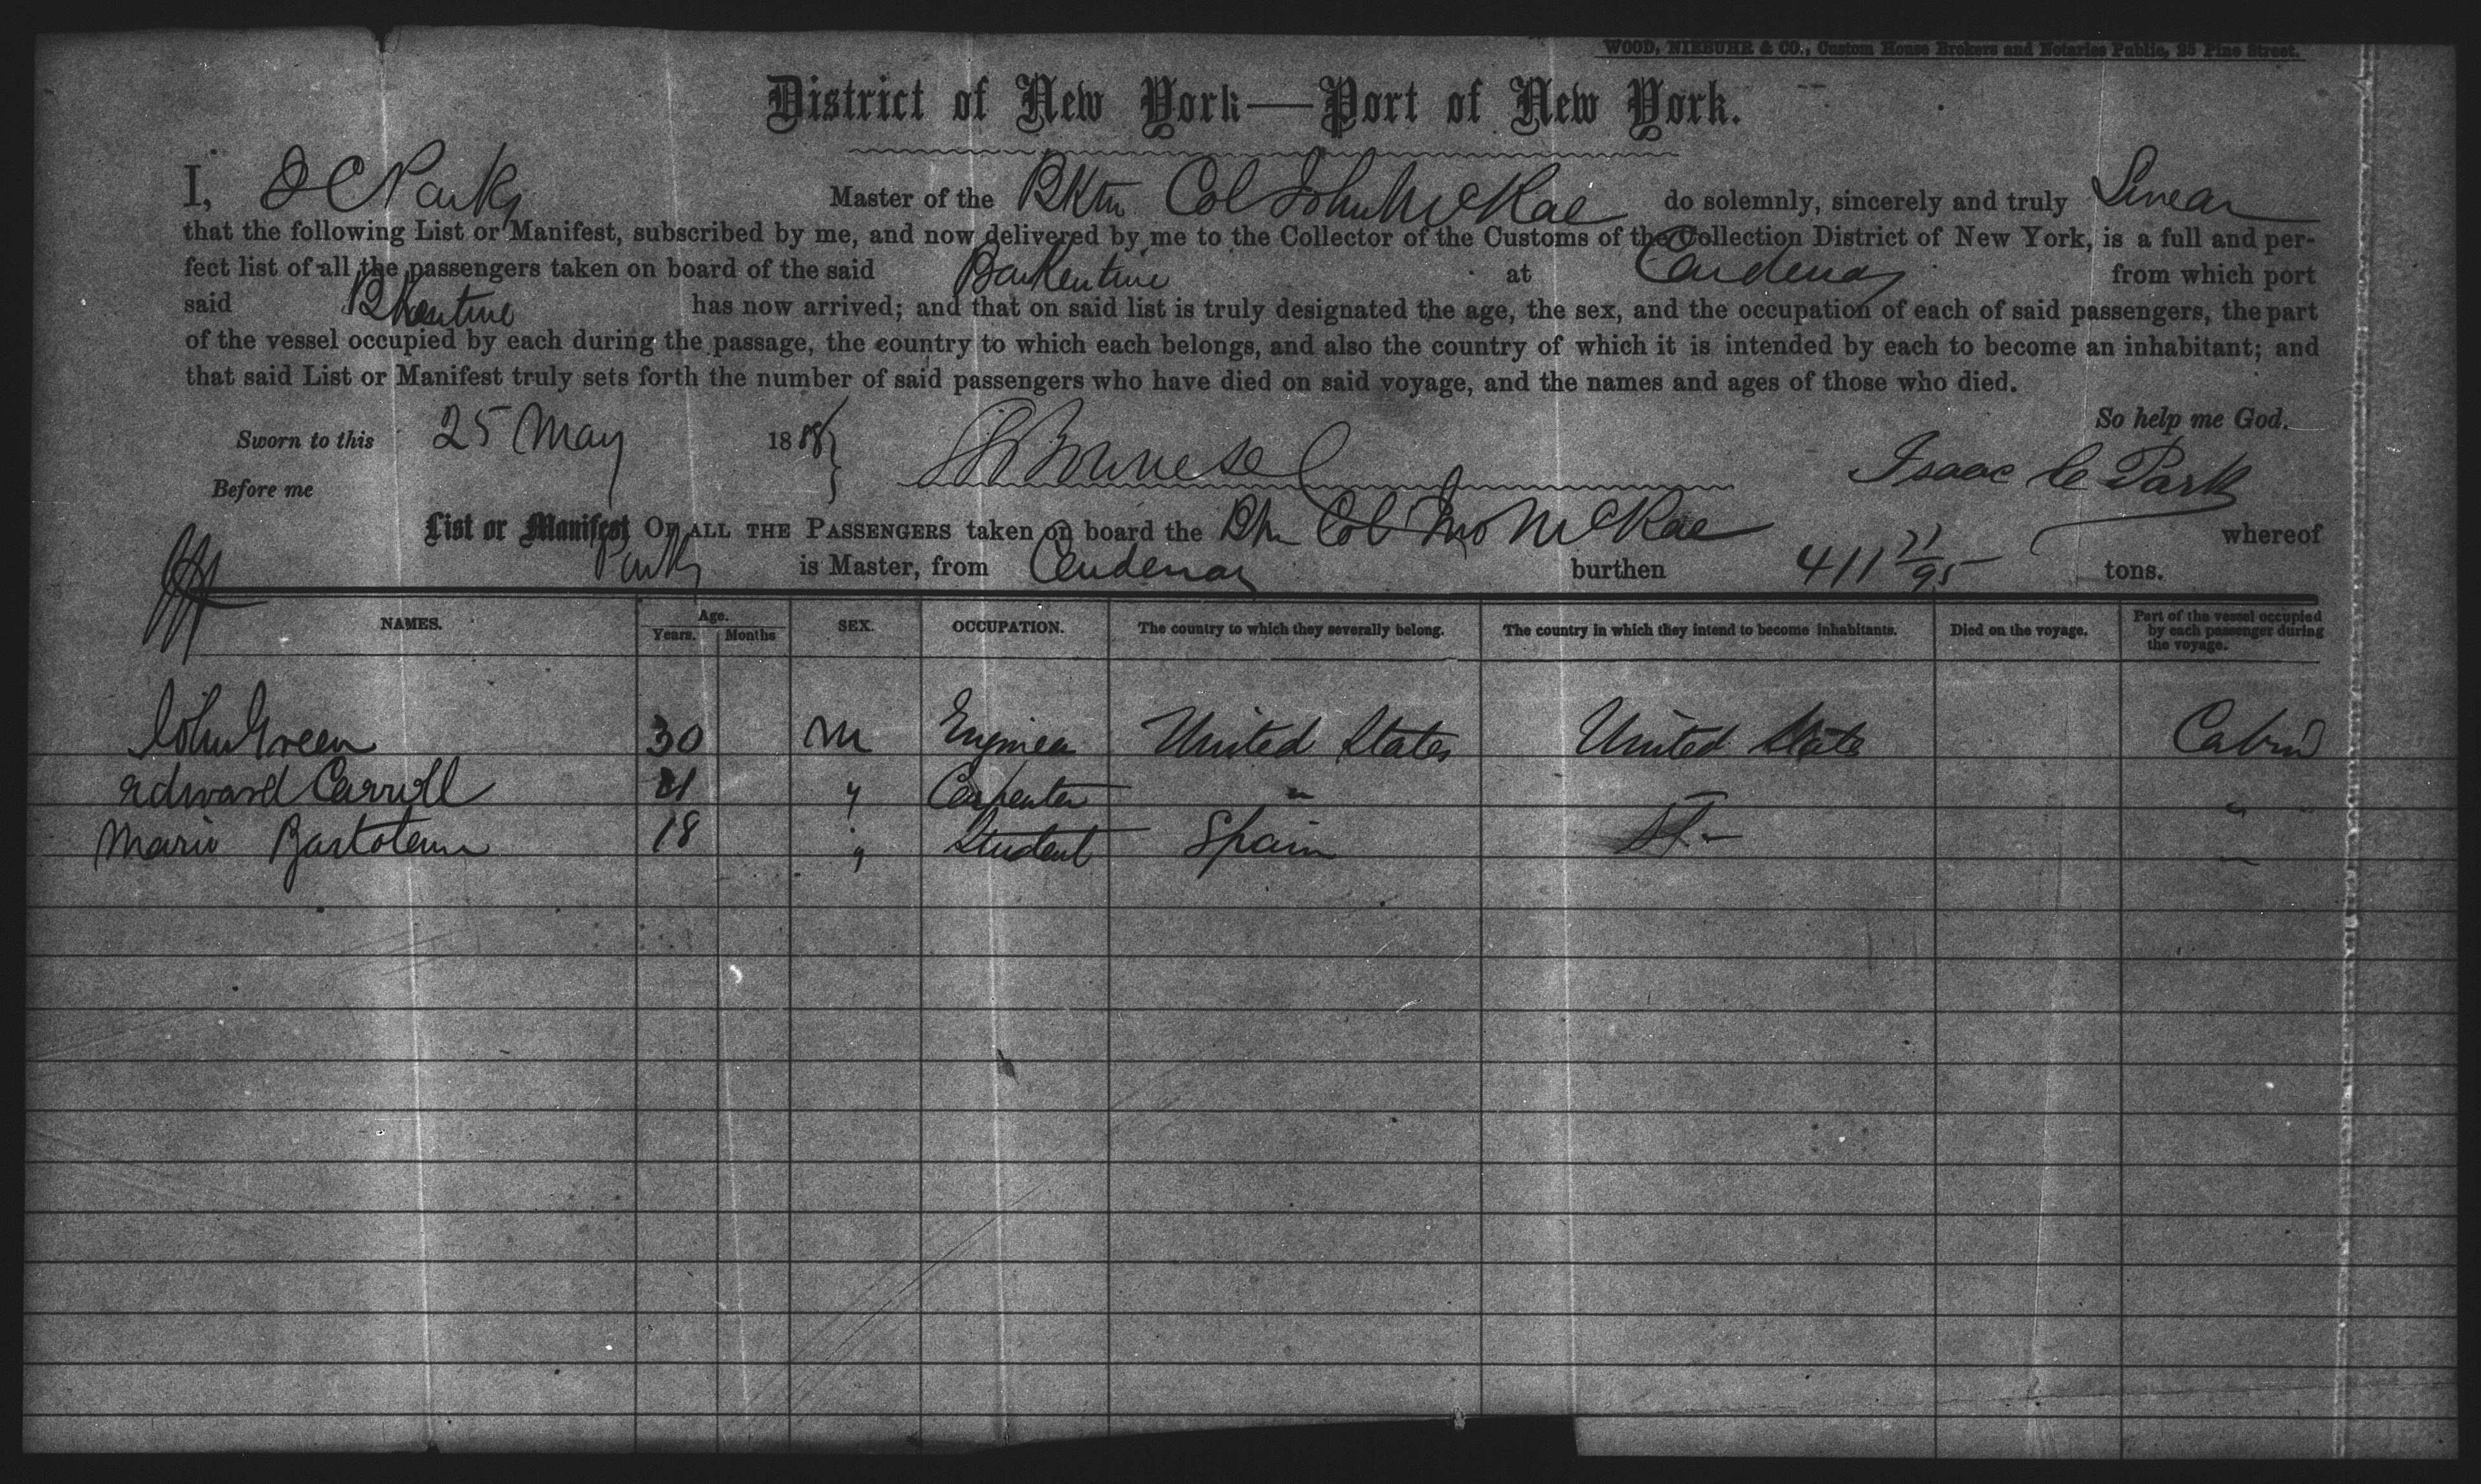 WOOD, NIEBUHR & CO., Custom House Brokers and Notaries Public, 25 Pine Street.
District of New York—Port of New York.
I, I C Park Master of the Bktn Col John McRae do solemnly, sincerely and truly Swear
that the following List or Manifest, subscribed by me, and now delivered by me to the Collector of the Customs of the Collection District of New York, is a full and per-
fect list of all the passengers taken on board of the said Barkentine at Cardenas from which port
said Bkentine has now arrived; and that on said list is truly designated the age, the sex, and the occupation of each of said passengers, the part
of the vessel occupied by each during the passage, the country to which each belongs, and also the country of which it is intended by each to become an inhabitant; and
that said List or Manifest truly sets forth the number of said passengers who have died on said voyage, and the names and ages of those who died.
So help me God.
Sworn to this 25 May 1888
Isaac C Park
Before me
List or Manifest OF ALL THE PASSENGERS taken on board the Bkn Col Jno McRae whereof
Park is Master, from Cardenas burthen 411 71/95 tons.
NAMES. Age. Years. Months SEX. OCCUPATION. The country to which they severally belong. The country in which they intend to become inhabitants. Died on the voyage. Part of the vessel occupied by each passenger during the voyage.
John Green 30 M Engineer United States United State Cabin
Edward Carroll 21 " Carpenter " "
Mario Bartolem 18 " Student Spain "